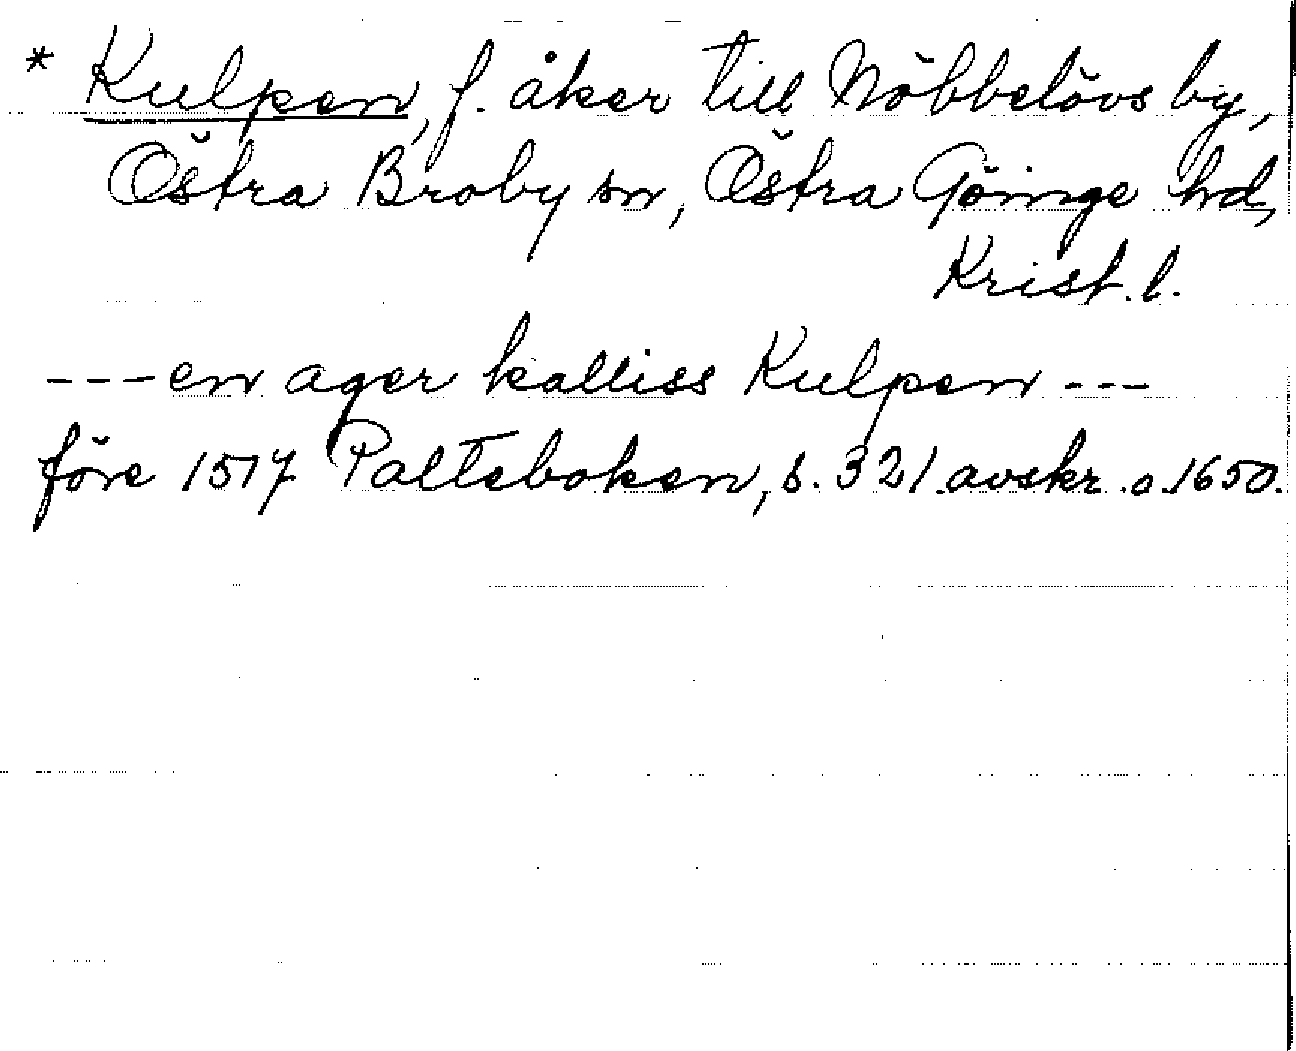 * Kulpen, f. åker till Nöbbelövs by,
Östra Broby sn, Östra Göinge hd,
Krist. l.
---en ager kalliss Kulpen ---
före 1517 Palteboken, s. 321. avskr. o. 1650.